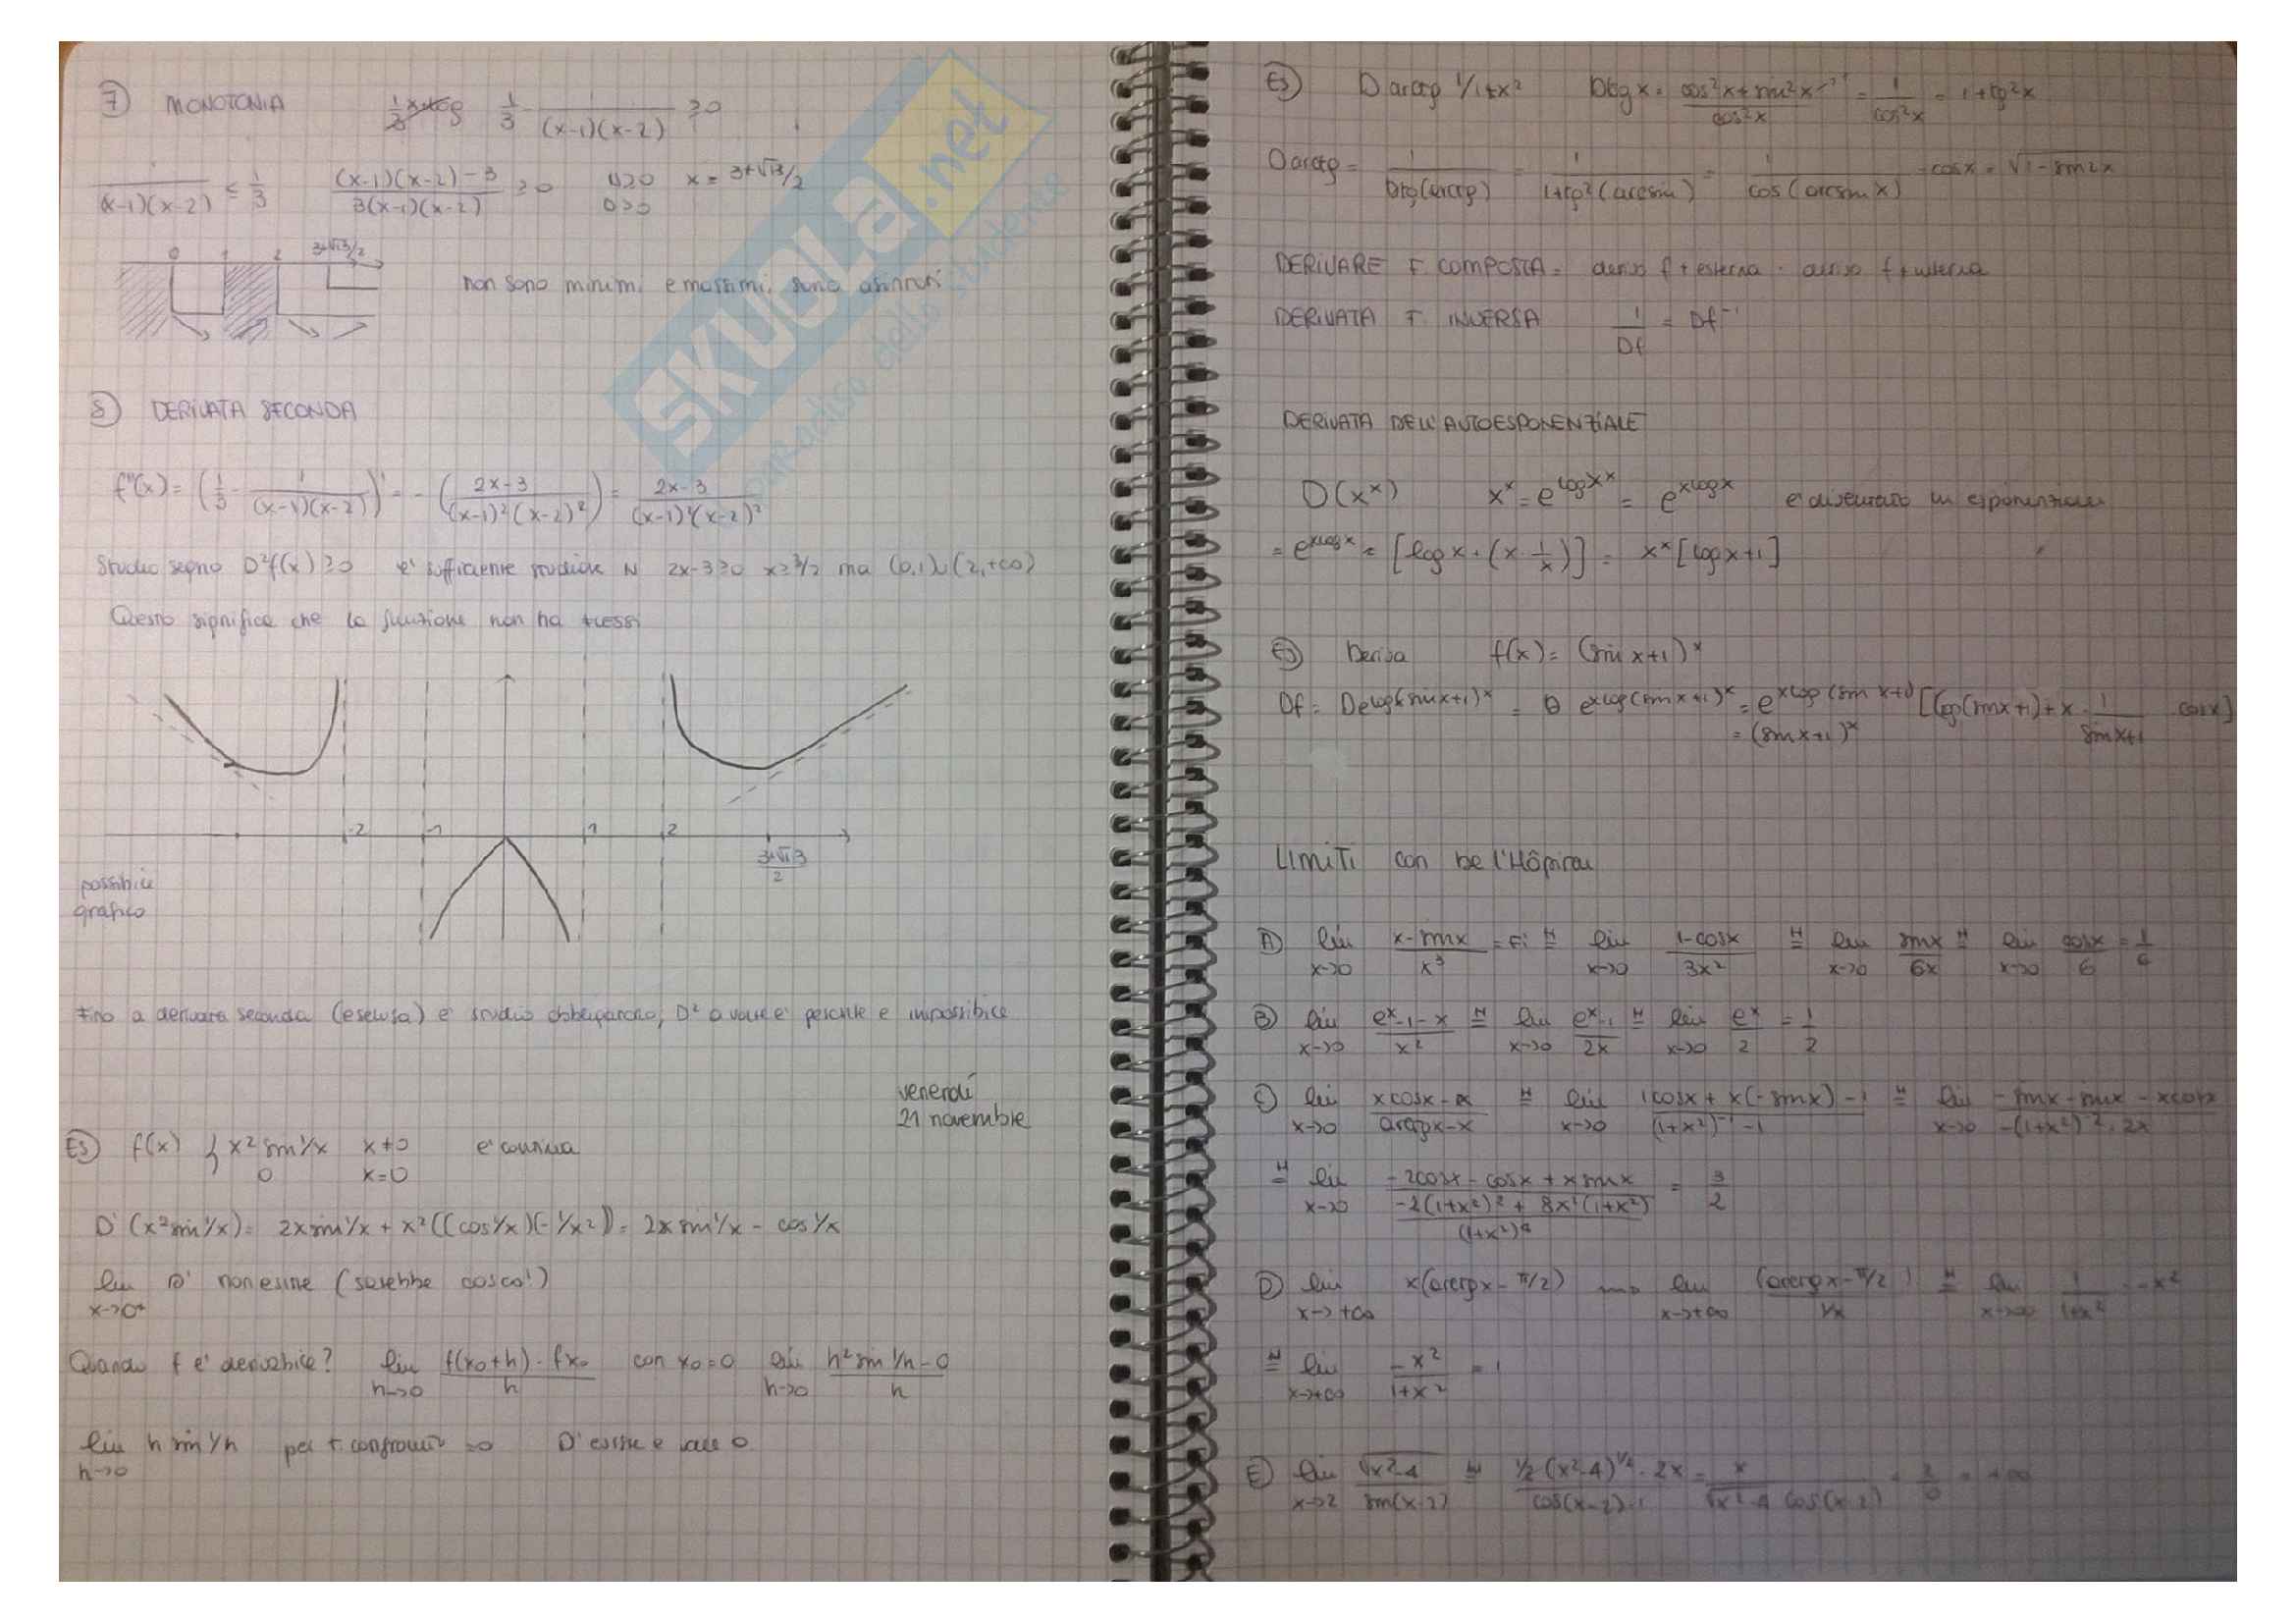 7) MONOTONIA 1/3 - 1/((x-1)(x-2)) ≥0
1/((x-1)(x-2)) ≤ 1/3 ((x-1)(x-2)-3)/(3(x-1)(x-2)) ≥0 N≥0 x = 3+√13/2
D>0
0 1 2 3+√13/2
non sono minimi e massimi, sono asintoti
SKUOLA.net
paradiso dello studente
8) DERIVATA SECONDA
f''(x) = (1/3 - 1/((x-1)(x-2)))' = -(2x-3/((x-1)²(x-2)²)) = 2x-3/((x-1)²(x-2)²)
Studio segno D²f(x) ≥0 e' sufficiente studiare N 2x-3≥0 x≥3/2 ma (0,1)∪(2,+∞)
Questo significa che la funzione non ha flessi
-2 -1 1 2
3+√13/2
possibile
grafico
Fino a derivata seconda (esclusa) e' studio obbligatorio, D² a volte e' pesante e impossibile
venerdí
21 novembre
ES) f(x) { x² sin 1/x x≠0 e' continua
0 x=0
D'(x² sin 1/x) = 2x sin 1/x + x²((cos 1/x)(-1/x²)) = 2x sin 1/x - cos 1/x
lim x->0+ D' non esiste (sarebbe cos ∞!)
Quando f e' derivabile? lim h->0 (f(x₀+h) - fx₀)/h con x₀=0 lim h->0 (h² sin 1/h - 0)/h
lim h->0 h sin 1/h per t. confronto ->0 D' esiste e vale 0
Es) D arctg 1/1+x² D tg x = (cos²x+sin²x)/cos²x = 1/cos²x = 1+tg²x
D arctg = 1/(D tg(arctg)) = 1/(1+tg²(arcsin)) = 1/(cos(arcsin x)) cosx = √1-sin2x
DERIVARE F. COMPOSTA = derivo f + esterna · derivo f + interna
DERIVATA F. INVERSA 1/Df = Df⁻¹
DERIVATA DELL'AUTOESPONENZIALE
D(xˣ) xˣ = e^(logxˣ) = e^(xlogx) e' diventato un esponenziale
= e^(xlogx) = [logx + (x · 1/x)] = xˣ[logx+1]
Es) Deriva f(x) = (sin x+1)ˣ
Df = De^(log(sinx+1)ˣ) = D e^(xlog(sinx+1)ˣ) = e^(xlog(sin x+1)) [log(sinx+1) + x · 1/(sinx+1) cosx]
= (sinx+1)ˣ
LIMITI con De l'Hôpital
A) lim x->0 (x-sinx)/x³ = Fi =ᴴ lim x->0 (1-cosx)/3x² =ᴴ lim x->0 sinx/6x =ᴴ lim x->0 cosx/6 = 1/6
B) lim x->0 (eˣ-1-x)/x² =ᴴ lim x->0 (eˣ-1)/2x =ᴴ lim x->0 eˣ/2 = 1/2
C) lim x->0 (xcosx-x)/(arctgx-x) =ᴴ lim x->0 (1cosx + x(-sinx)-1)/((1+x²)⁻¹-1) =ᴴ lim x->0 (-sinx-sinx-xcosx)/(-(1+x²)⁻²·2x)
=ᴴ lim x->0 (-2cosx-cosx+xsinx)/((-2(1+x²)²+8x²(1+x²))/(1+x²)⁴) = 3/2
D) lim x->+∞ x(arctgx-π/2) lim x->+∞ (arctgx-π/2)/(1/x) =ᴴ lim x->∞ 1/(1+x²) · -x²
=ᴴ lim x->+∞ -x²/(1+x²) = 1
E) lim x->2 √x²-4/sin(x-2) =ᴴ (1/2(x²-4)^(1/2)·2x)/(cos(x-2)·1) = x/(√x²-4 cos(x-2)) = 2/0 = +∞